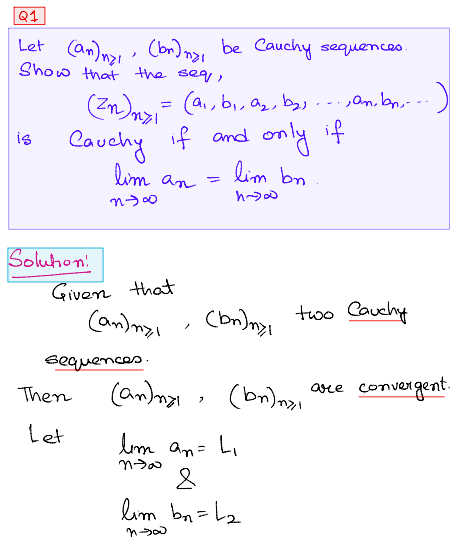 Q1
Let (aₙ)ₙ≥₁ , (bₙ)ₙ≥₁ be Cauchy sequences.
Show that the seq,
(Zₙ)ₙ≥₁ = (a₁, b₁, a₂, b₂, ..., aₙ, bₙ, ...)
is Cauchy if and only if
lim aₙ = lim bₙ.
n→∞ n→∞
Solution:
Given that
(aₙ)ₙ≥₁ , (bₙ)ₙ≥₁ two Cauchy
sequences.
Then (aₙ)ₙ≥₁ , (bₙ)ₙ≥₁ are convergent.
Let
lim aₙ = L₁
n→∞
&
lim bₙ = L₂
n→∞